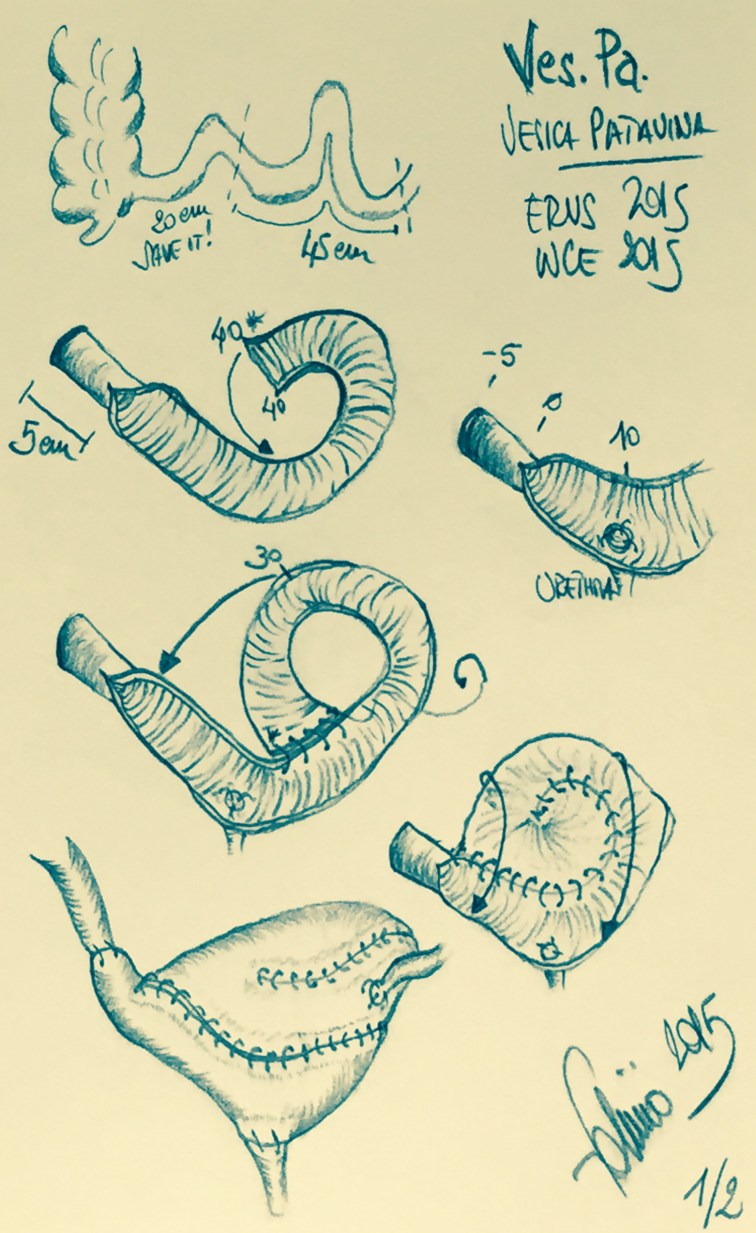 Ves. Pa.
VESICA PATAVINA
ERUS 2015
WCE 2015
20 cm
SAVE IT!
45 cm
40*
40
5 cm
-5
0
10
URETHRA
30
2015
1/2